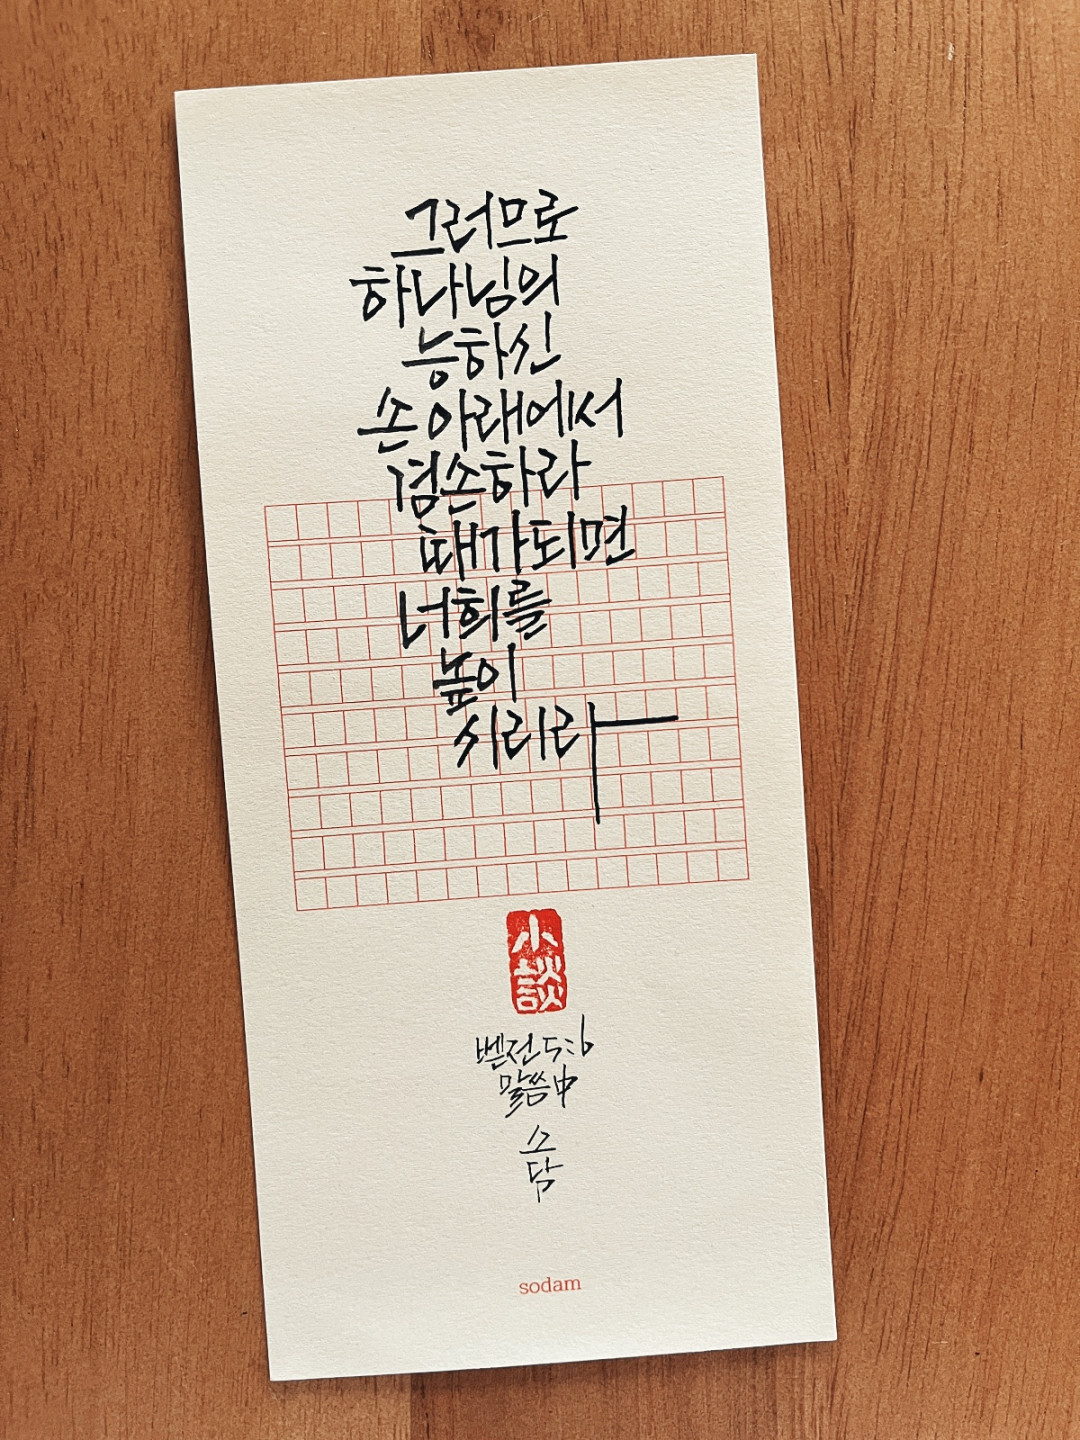 그러므로
하나님의
능하신
손 아래에서
겸손하라
때가 되면
너희를
높이
시리라
小
談
벧전 5:6
말씀 中
소
담
sodam